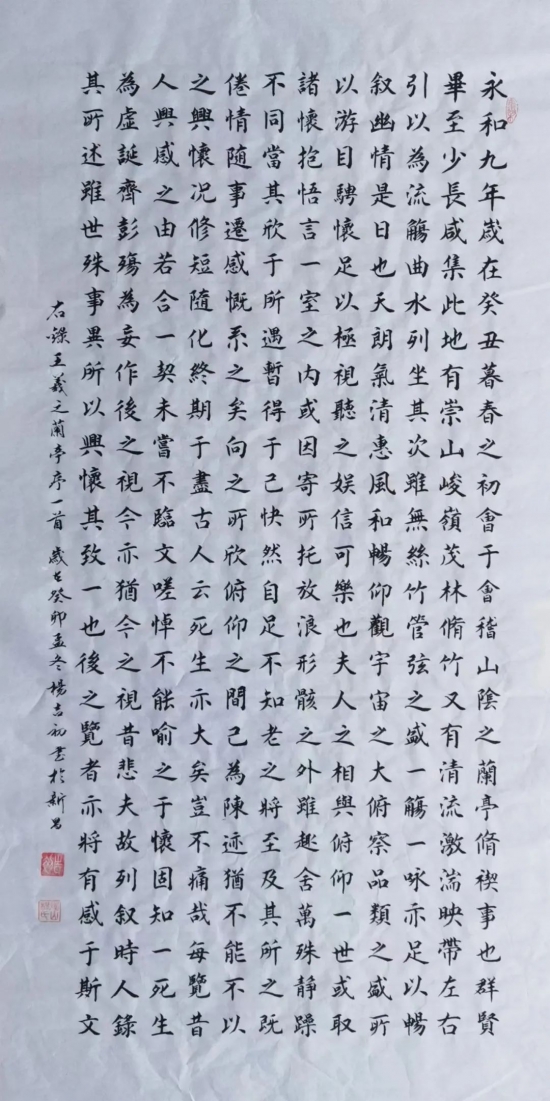 永和九年歲在癸丑暮春之初會于會稽山陰之蘭亭脩禊事也群賢
畢至少長咸集此地有崇山峻嶺茂林脩竹又有清流激湍映帶左右
引以為流觴曲水列坐其次雖無絲竹管弦之盛一觴一咏亦足以暢
叙幽情是日也天朗氣清惠風和暢仰觀宇宙之大俯察品類之盛所
以游目騁懷足以極視聽之娱信可樂也夫人之相與俯仰一世或取
諸懷抱悟言一室之内或因寄所托放浪形骸之外雖趣舍萬殊静躁
不同當其欣于所遇暫得于己快然自足不知老之將至及其所之既
倦情随事遷感慨系之矣向之所欣俯仰之間已為陳迹猶不能不以
之興懷况修短隨化終期于盡古人云死生亦大矣豈不痛哉每覽昔
人興感之由若合一契未嘗不臨文嗟悼不能喻之于懷固知一死生
為虛誕齊彭殤為妄作後之視今亦猶今之視昔悲夫故列叙時人錄
其所述雖世殊事異所以興懷其致一也後之覽者亦將有感于斯文
右錄王羲之蘭亭序一首 歲在癸卯孟冬楊吉初書於新昌